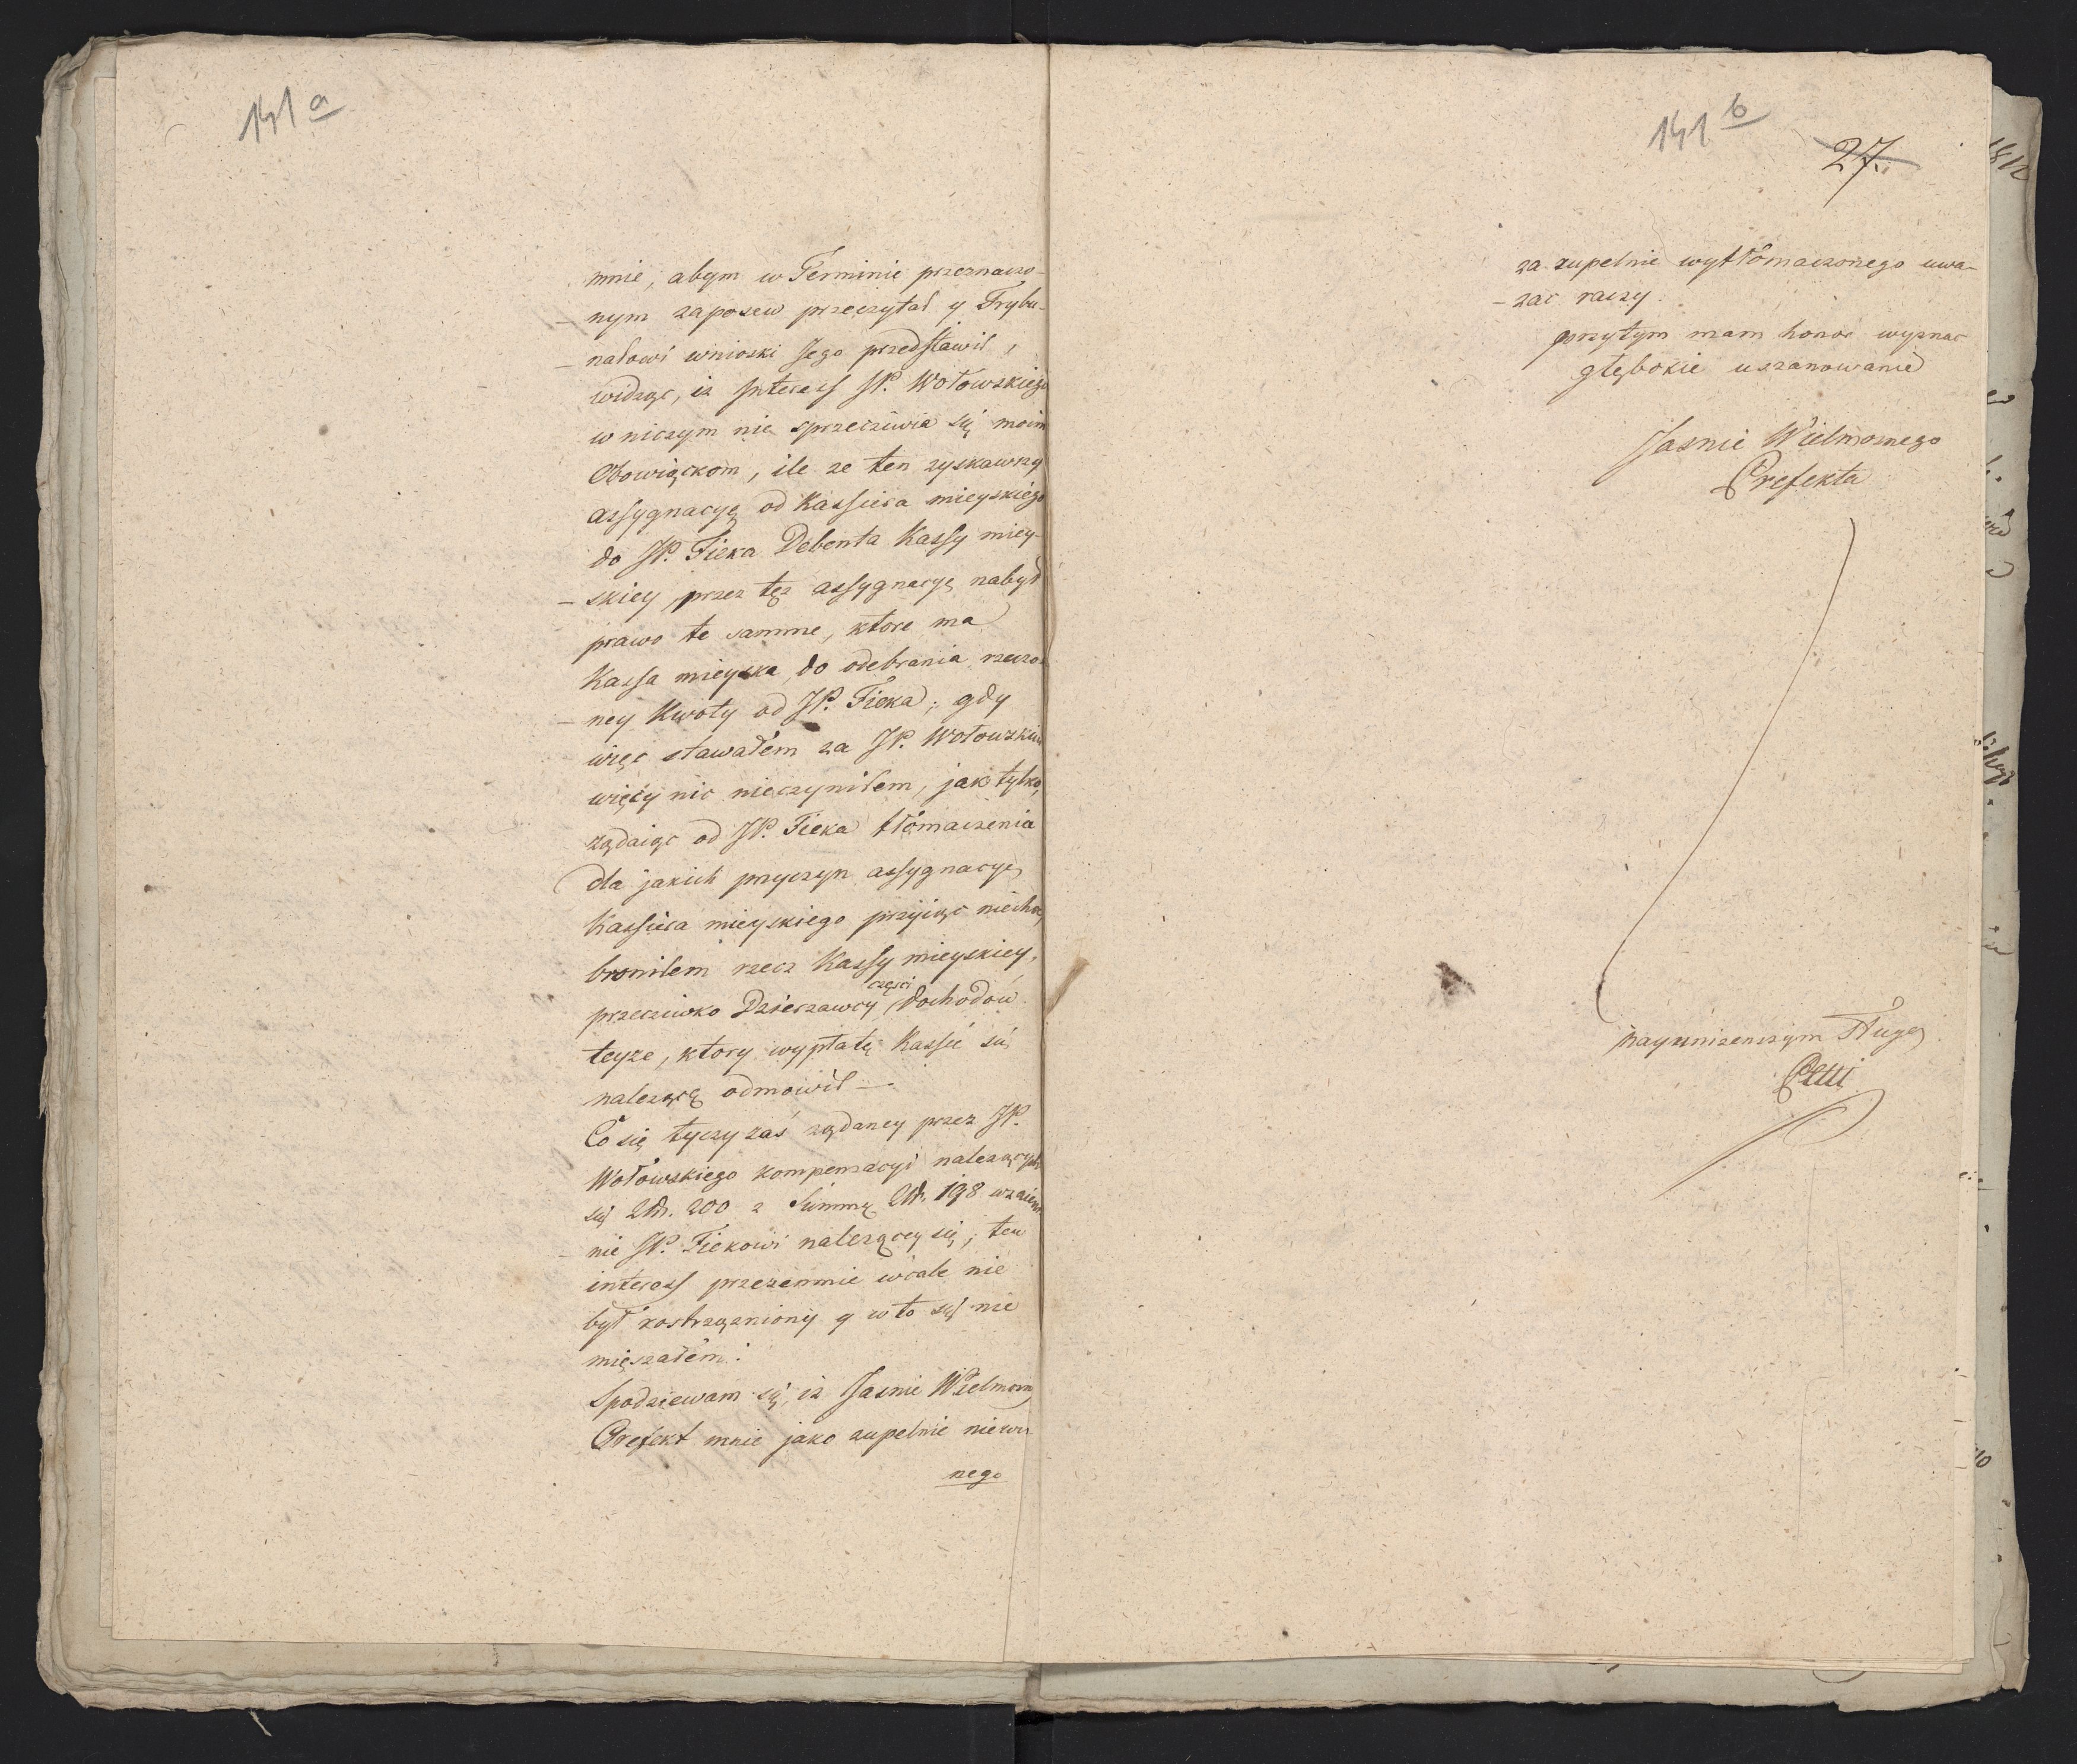 141 a
mnie, abym w Terminie przeznaczo-
- nym zaposew przeczytał y Trybu-
- nałowi wnioski Jego przedstawił,
widząc, iz Interess JP. Wołowskiego
w niczym nie sprzeciwia się moim
Obowiązkom, ile ze ten zyskawszy
assygnacyę od Kassiera mieyskiego
do JP. Fieka Debenta Kassy miey-
- skiey, przez tęz assygnacyę nabył
prawo te samme, ktore ma
Kassa mieyska, do odebrania rzeczo-
- ney Kwoty od JP. Fieka; gdy
więc stawałem za JP. Wołowskim
więcy nic nieczyniłem, jak tylko,
ządaiąc od JP. Fieka tłómaczenia
dla jakich przyczyn assygnacye
Kassiera mieyskiego przyiąc niechce,
broniłem rzecz Kassy mieyskiey,
przeciwko Dzierzawcy części dochodow
teyze, ktory wypłatę Kassie się
nalezącą odmowił —.
Co się tyczy zaś ządaney przez JP.
Wołowskiego kompensacyi nalezących
się Złt. 200 z Summą Złt. 198 wzaiem
- nie JP. Fiekowi nalezącey się, ten
interess przezemnie wcale nie
był rostrząsniony y w to się nie
mięszałem.
Spodziewam się, iz Jasnie Wielmozny
Prefekt mnie jako zupelnie niewin
nego
141 b
27.
za zupelnie wytłómaczonego uwa-
- zac raczy.
przytym mam honor wyznac
głębokie uszanowanie
Jasnie Wielmoznego
Prefekta
nayunizenszym Sługą